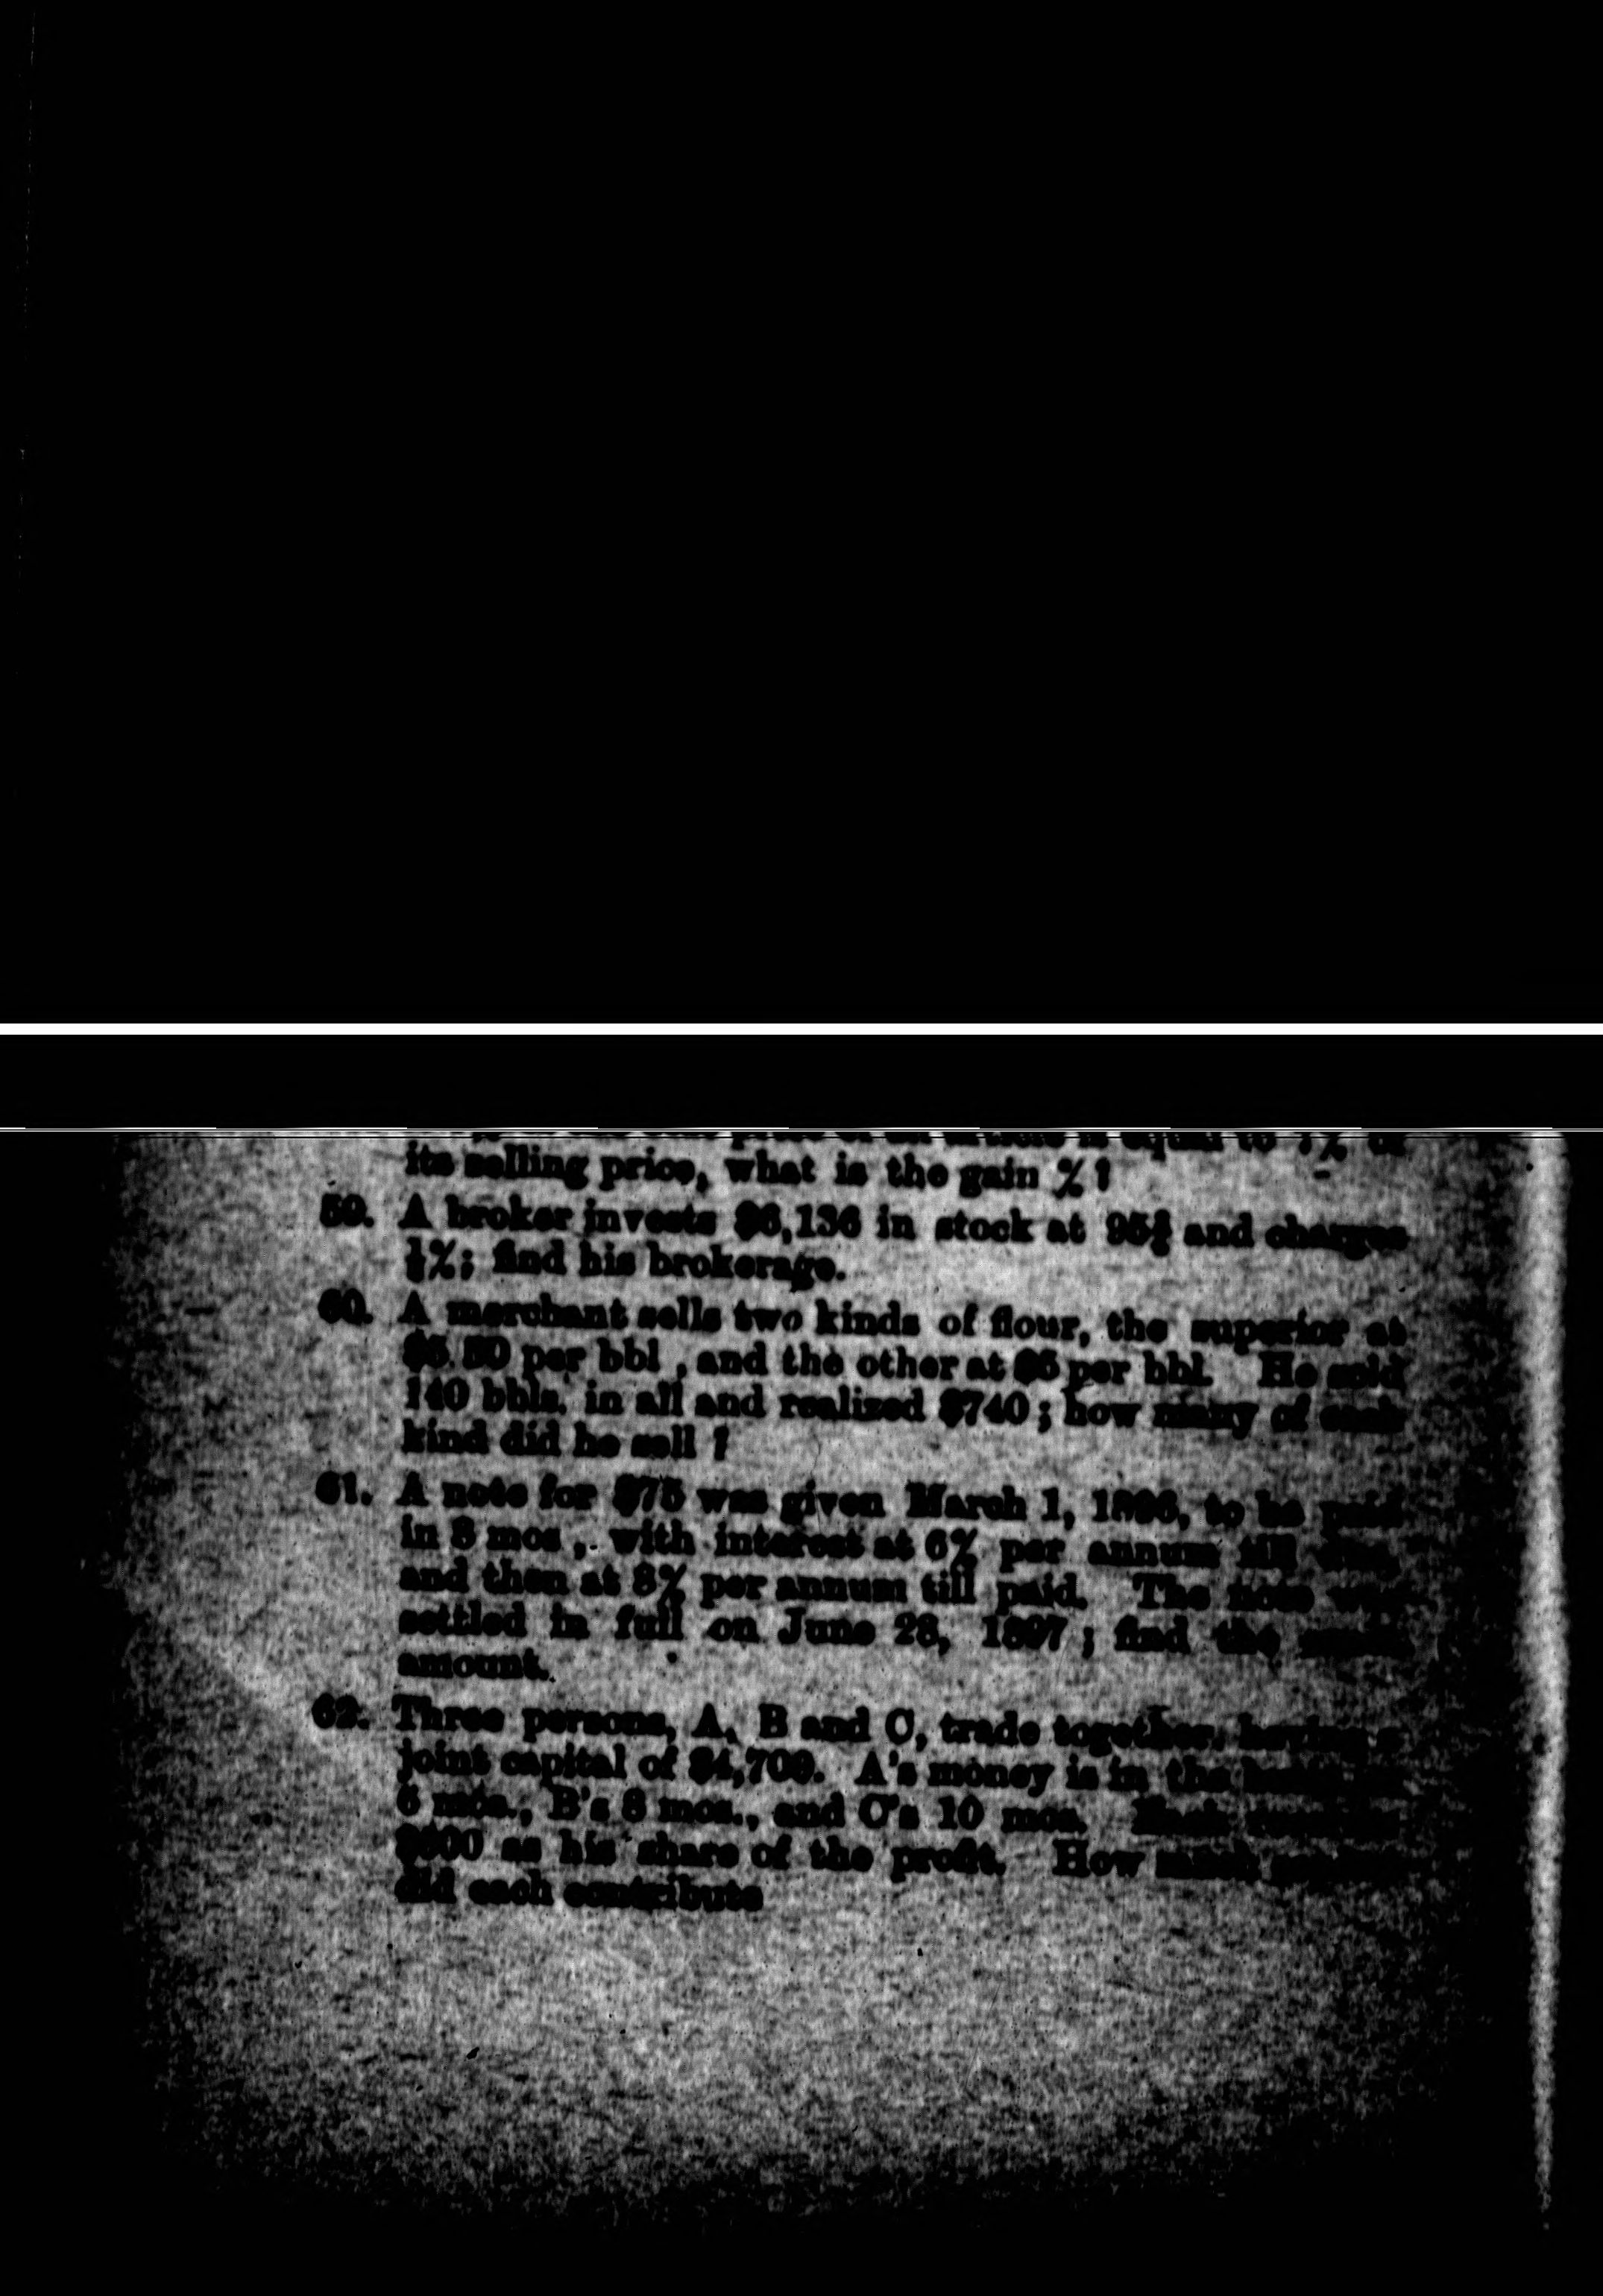 equal to
its selling price, what is the gain %?
59. A broker invests $6,136 in stock at and charges
%; find his brokerage.
60. A merchant sells two kinds of flour, the superior at
$5.50 per bbl, and the other at $5 per bbl. He sold
140 bbls. in all and realized $740; how many of each
kind did he sell?
61. A note for $75 was given March 1, to be paid
in 8 mos, with interest at 6% per annum till due,
and then at 8% per annum till paid. The note was
settled in full on June 28, 1897; find the
amount.
62. Three persons, A, B and C, trade together, having a
joint capital of A's money is in the
mos., B's 8 mos., and C's 10 mos.
as his share of the profit. How much
did each contribute